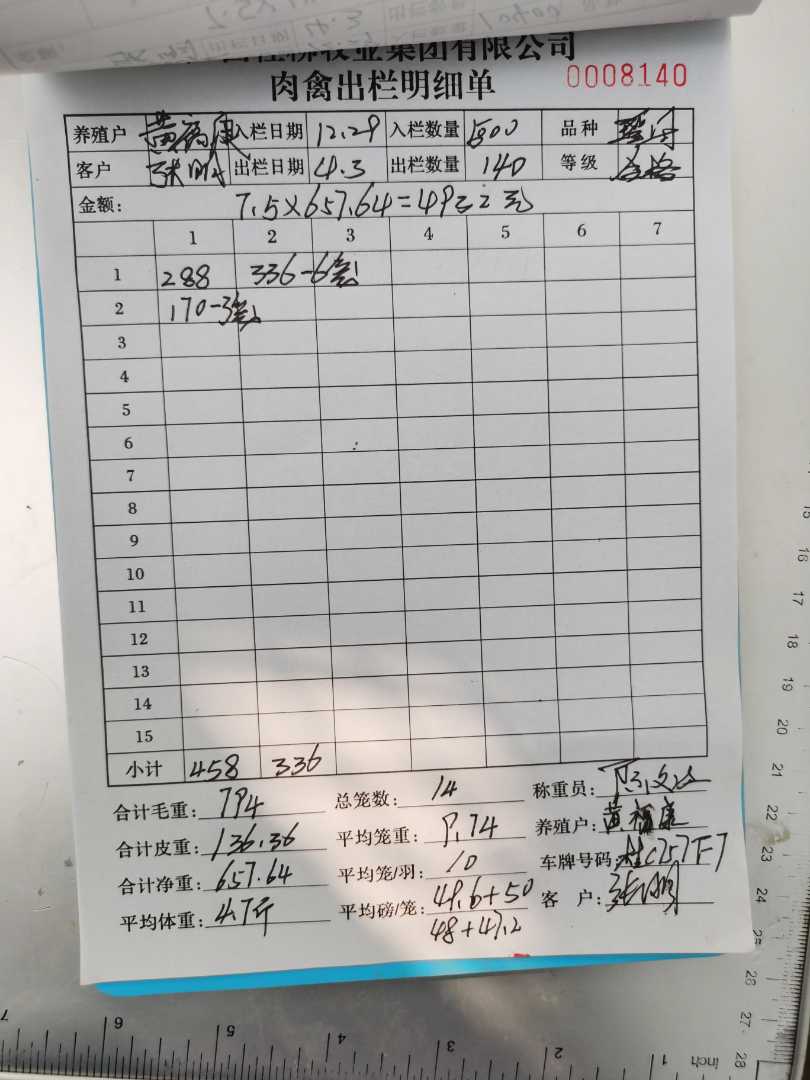 牧业集团有限公司
肉禽出栏明细单 0008140
养殖户 黄福康 入栏日期 12.29 入栏数量 1500 品种
客户 张明 出栏日期 4.3 出栏数量 140 等级 合格
金额: 7.5×657.64=4932元
1 2 3 4 5 6 7
1 288 336-6笼
2 170-3笼
3
4
5
6
7
8
9
10
11
12
13
14
15
小计 458 336
合计毛重: 794 总笼数: 14 称重员:
合计皮重: 136.36 平均笼重: 9.74 养殖户: 黄福康
合计净重: 657.64 平均笼/羽: 10 车牌号码: 桂C757F7
平均体重: 4.7斤 平均磅/笼: 49.6+50 客 户: 张明
48+47.2
7 6 5 4 3 2 1 inch
15 16 17 18 19 20 21 22 23 24 25 26 27 28